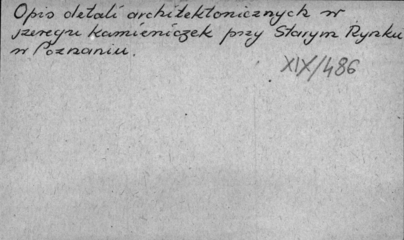 Opis detali architektonicznych w
szeregu kamieniczek przy Starym Rynku
w Poznaniu.
XIX/486